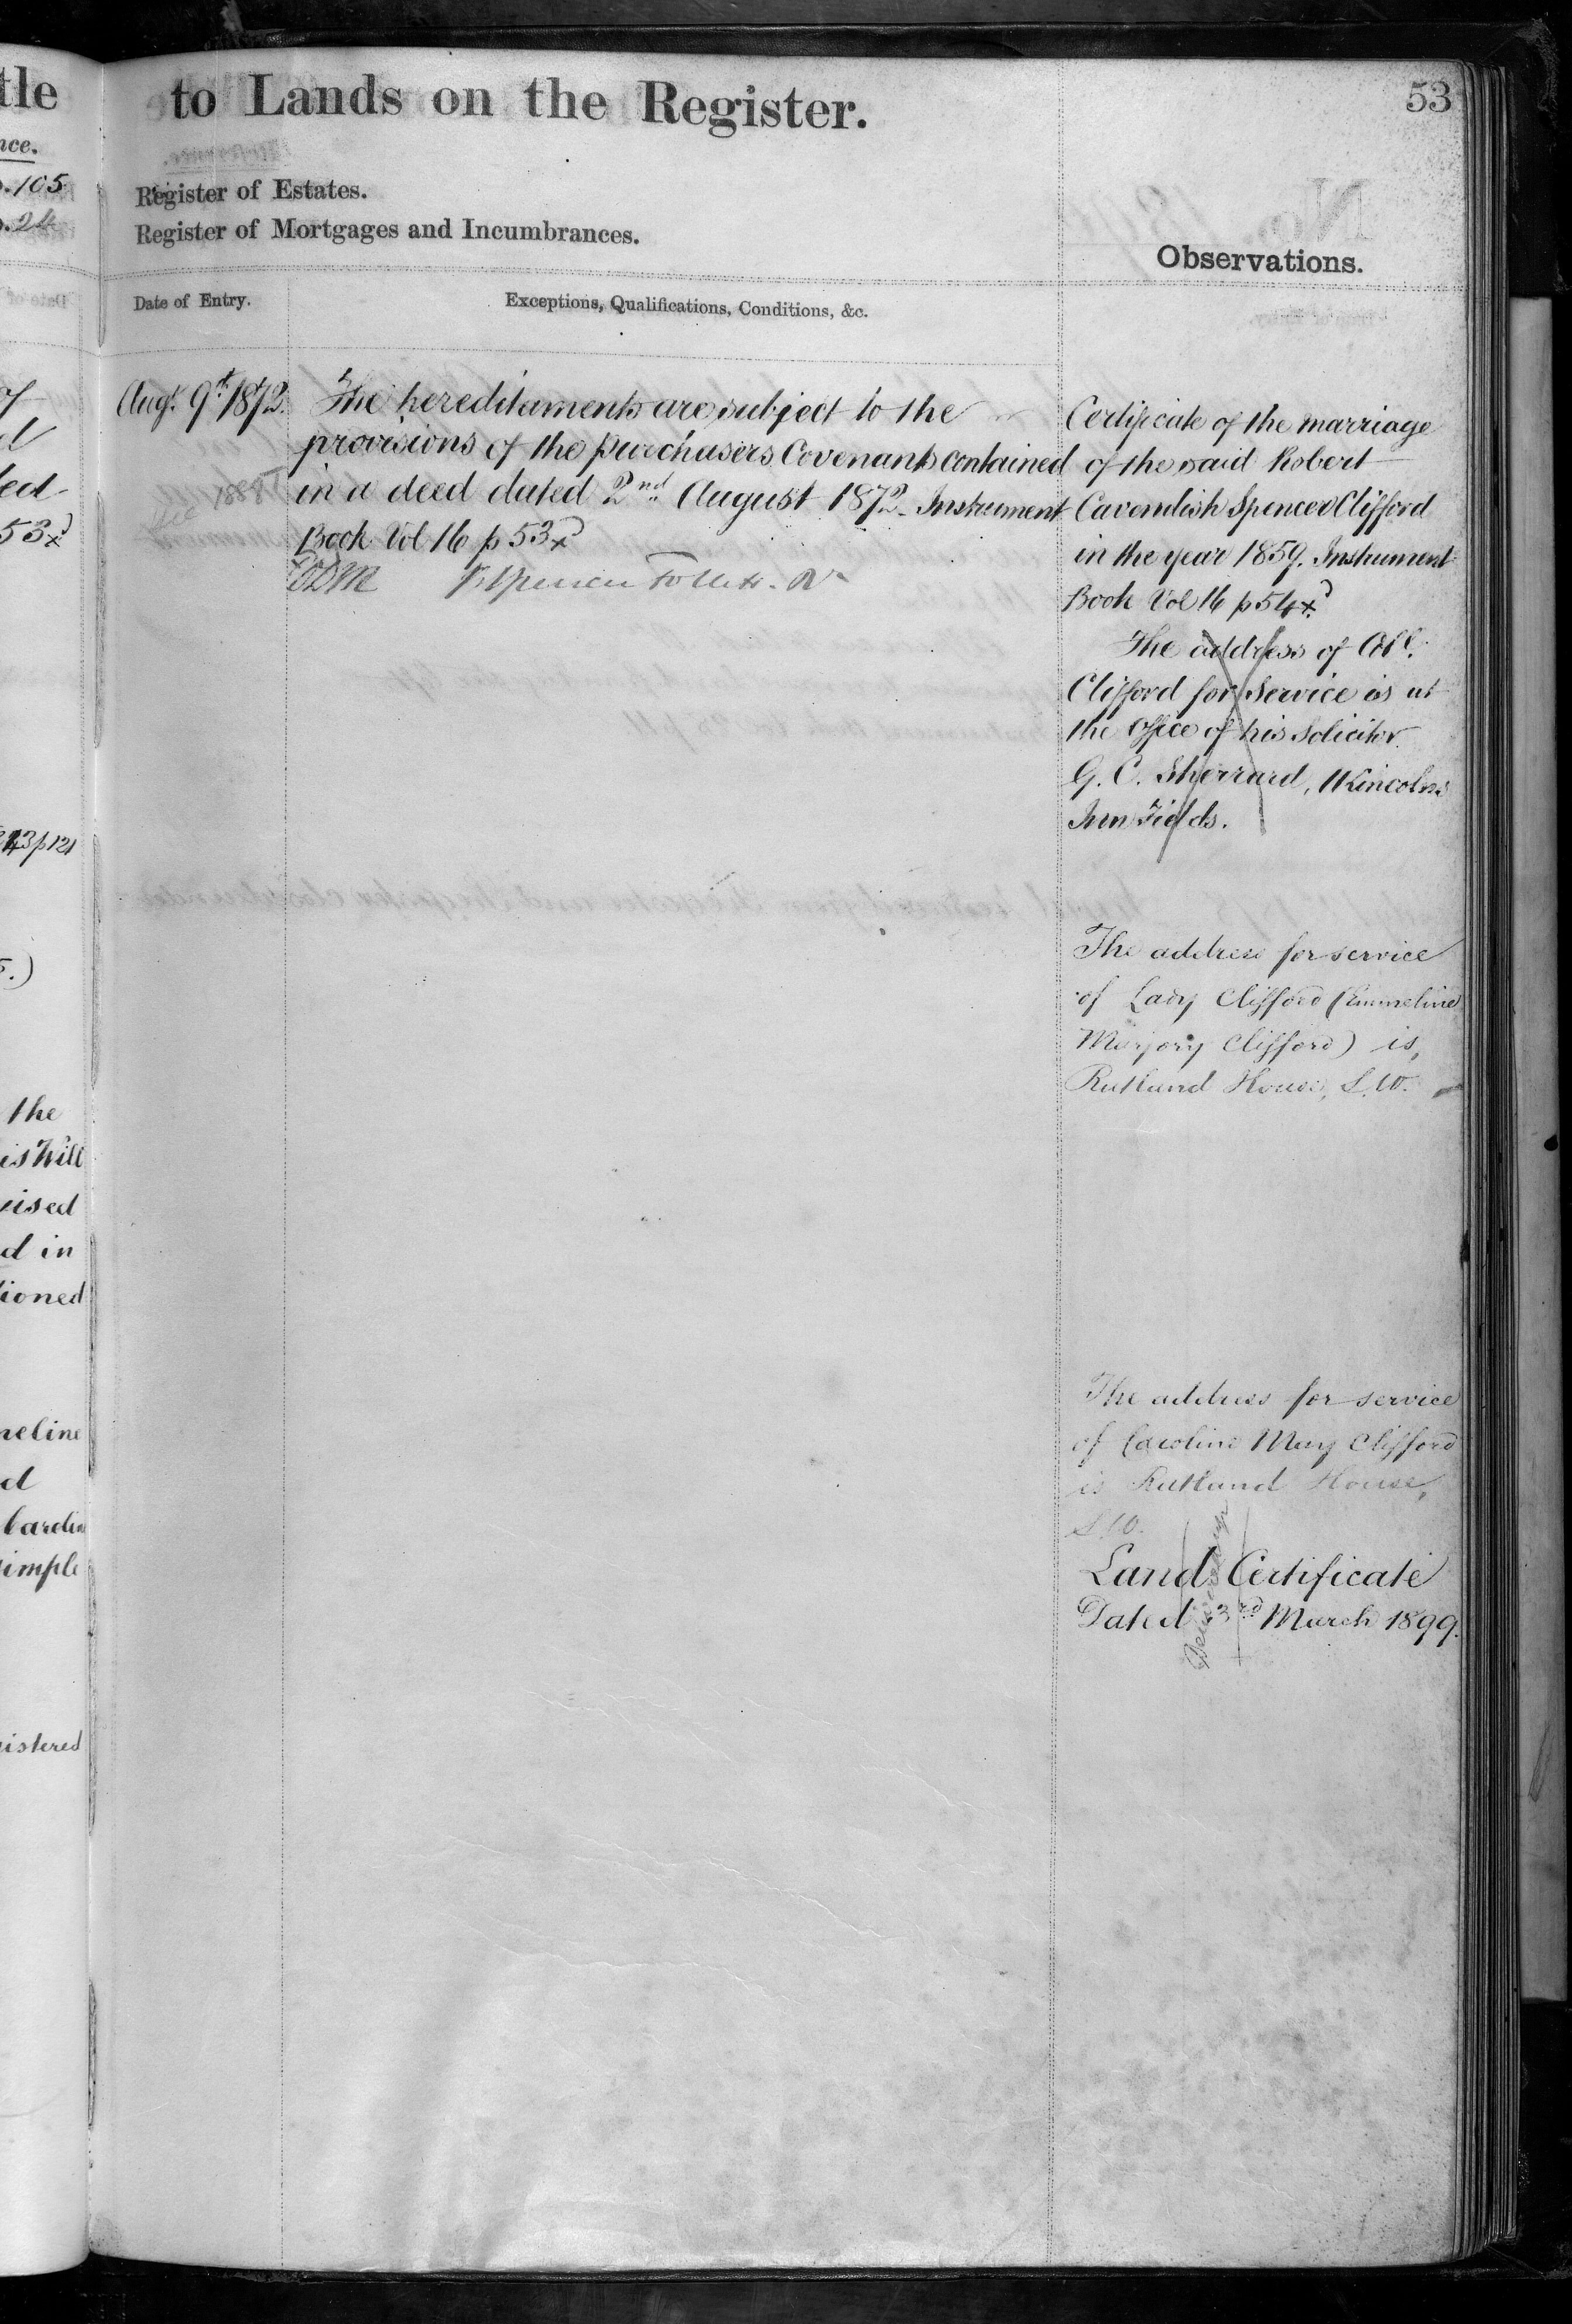 tle
nce.
.105
.24
d
53x
43 p 121
5.)
the
is Will
vised
d in
tioned
neline
d
Carolin
simple
istered
to Lands on the Register.
53
Register of Estates.
Register of Mortgages and Incumbrances.
Observations.
Date of Entry.
Exceptions, Qualifications, Conditions, &c.
Augt. 9th 1872.
The hereditaments are subject to the
provisions of the purchasers Covenants contained
in a deed dated 2nd August 1872. Instrument
Book Vol 16 p 53x
Certificate of the marriage
of the said Robert
Cavendish Spencer Clifford
in the year 1859. Instrument
Book Vol 16 p 54x
The address of Coll.
Clifford for Service is at
the Office of his Solicitor
G. C. Sherrard, Lincolns
Inn Fields.
The address for service
of Lady Clifford (Emmeline
Marjory Clifford) is,
Rutland House, S.W.
The address for service
of Caroline May Clifford
is Rutland House,
S.W.
Land Certificate
Dated 3rd March 1899.